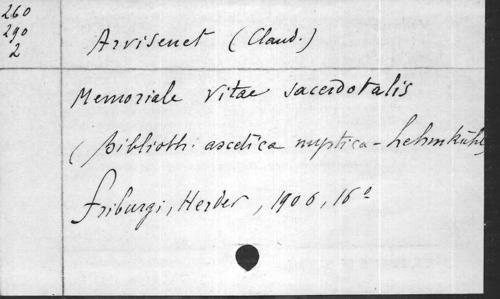 260
290
2
Arvisenet (Claud.)
Memoriale vitae sacerdotalis
(Biblioth. ascetica mystica - Lehmkühl
Friburgi, Herder, 1906, 16º